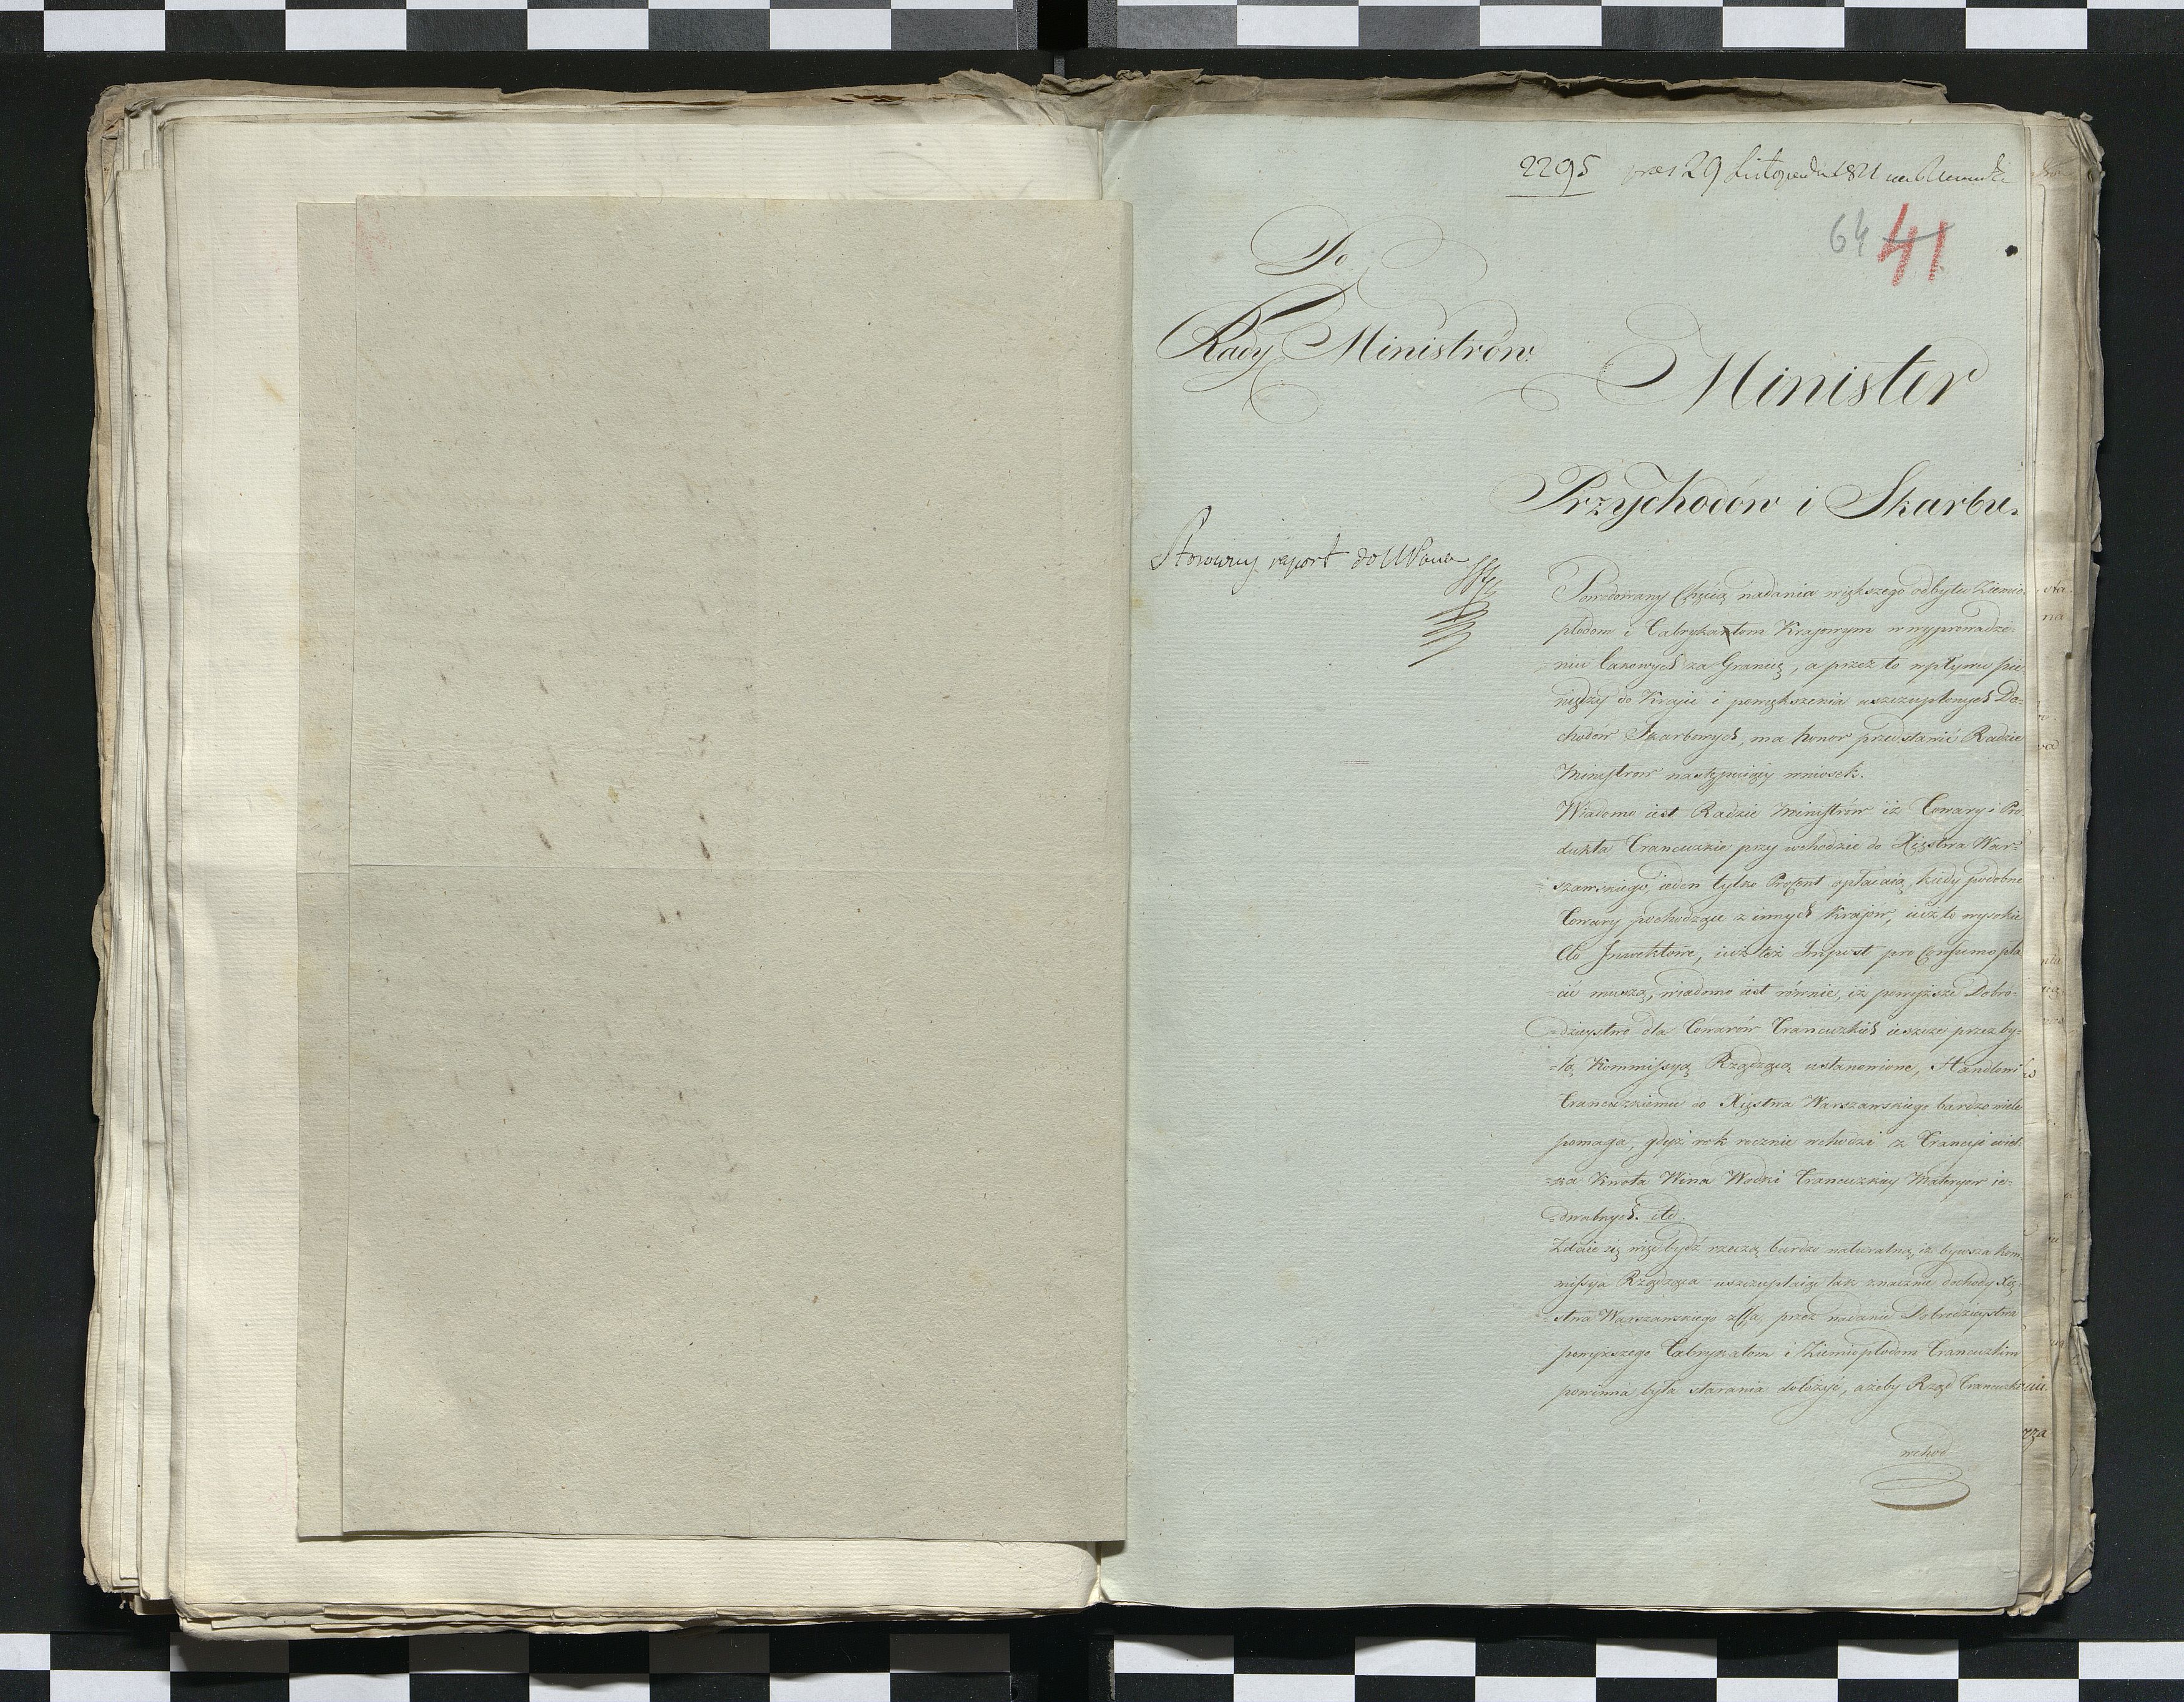 2295 pres 29 Listopada 1811
64 41
Do
Rady Ministrów.
Minister
Przychodów i Skarbu.
Stosowny raport do
Powodowany Chęcią nadania większego odbytu Ziemio-
płodom i Fabrykatom Krajowym w wyprowadze-
niu takowych za Granicę, a przez to wpływu pie
niędzy do Kraju i powiększenia uszczuplonych Do-
chodów Skarbowych, ma honor przedstawić Radzie
Ministrow następuiący wniosek.
Wiadomo iest Radzie Ministrów iż Towary i Pro
dukta Francuzkie przy wchodzie do Xięstwa War-
szawskiego, ieden tylko Procent opłacaią, kiedy podobne
Towary pochodzące z innych Kraiów, iuż to wysokie
Cło Inwektowe, iuż też Impost pro Consumo pła
cić muszą, wiadomo iest równie, iż powyższe Dobro-
dzieystwo dla Towarów Francuzkich ieszcze przez by-
łą Kommissyą Rządzącą ustanowione, Handlowi
Francuzkiemu do Xięstwa Warszawskiego bardzo wiele
pomaga, gdyż rok rocznie wchodzi z Francyi wiel-
ka Kwota Wina Wodki Francuzkiey Materyów ie-
dwabnych. itd.
Zdaie się więc bydź rzeczą bardzo naturalną, iż bywsza Kom
missya Rządząca uszczuplaiąc tak znacznie dochody Xię-
stwa Warszawskiego z Cła, przez nadanie Dobrodzieystwa
powyższego Fabrykatom i Ziemiopłodom Francuzkim
powinna była starania dołożyć, ażeby Rząd Francuzki
wchod